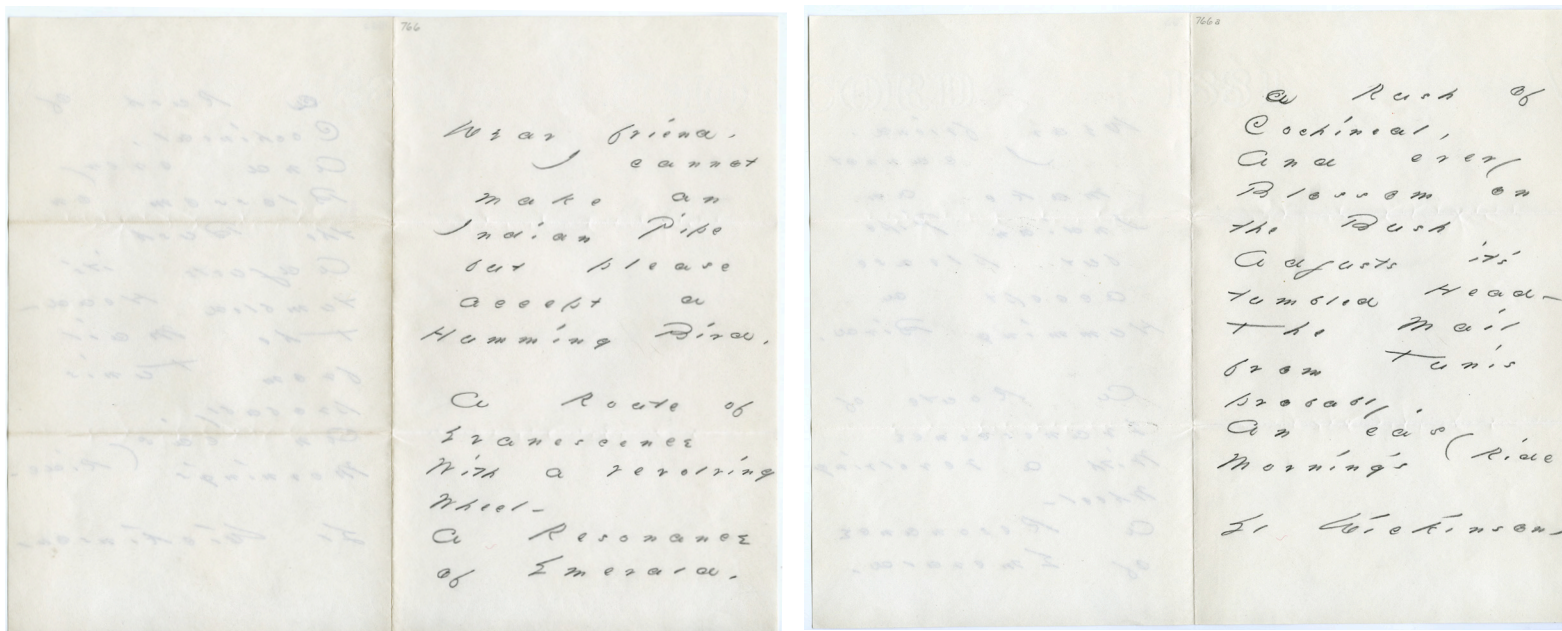 766
Dear friend.
I cannot
make an
Indian Pipe
but please
accept a
Humming Bird.
A Route of
Evanescence
With a revolving
Wheel –
A Resonance
of Emerald.
766a
a Rush of
Cochineal,
And every
Blossom on
the Bush
Adjusts it's
tumbled Head –
The Mail
from Tunis
probably,
An easy Ride
Morning's
E. Dickinson.